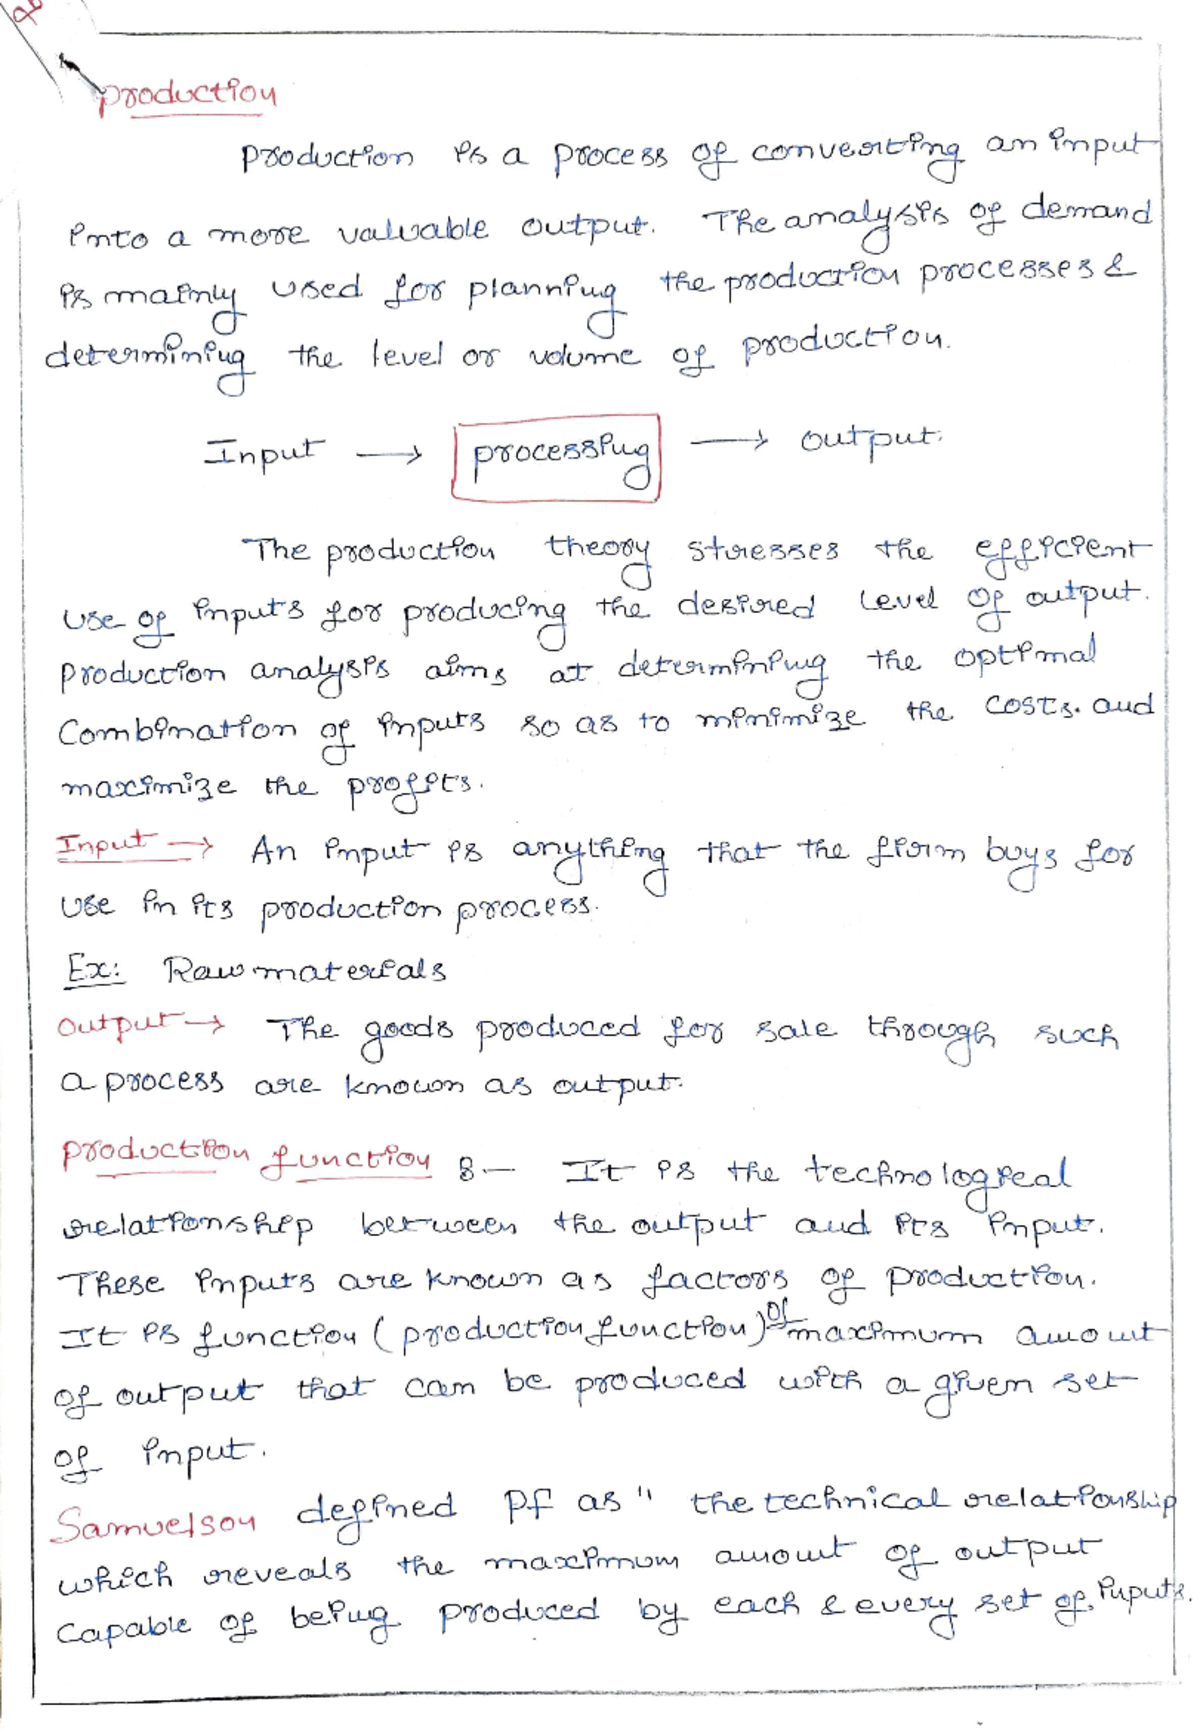 Production
Production is a process of converting an input
into a more valuable output. The analysis of demand
is mainly used for planning the production processes &
determining the level or volume of production.
Input → processing → output.
The production theory stresses the efficient
use of inputs for producing the desired level of output.
production analysis aims at determining the optimal
Combination of inputs so as to minimize the costs. and
maximize the profits.
Input → An input is anything that the firm buys for
use in its production process.
Ex: Raw materials
Output → The goods produced for sale through such
a process are known as output.
Production function :- It is the technological
relationship between the output and its input.
These inputs are known as factors of production.
It is function (production function) of maximum amount
of output that can be produced with a given set
of input.
Samuelson defined P.f as " the technical relationship
which reveals the maximum amount of output
capable of being produced by each & every set of inputs.